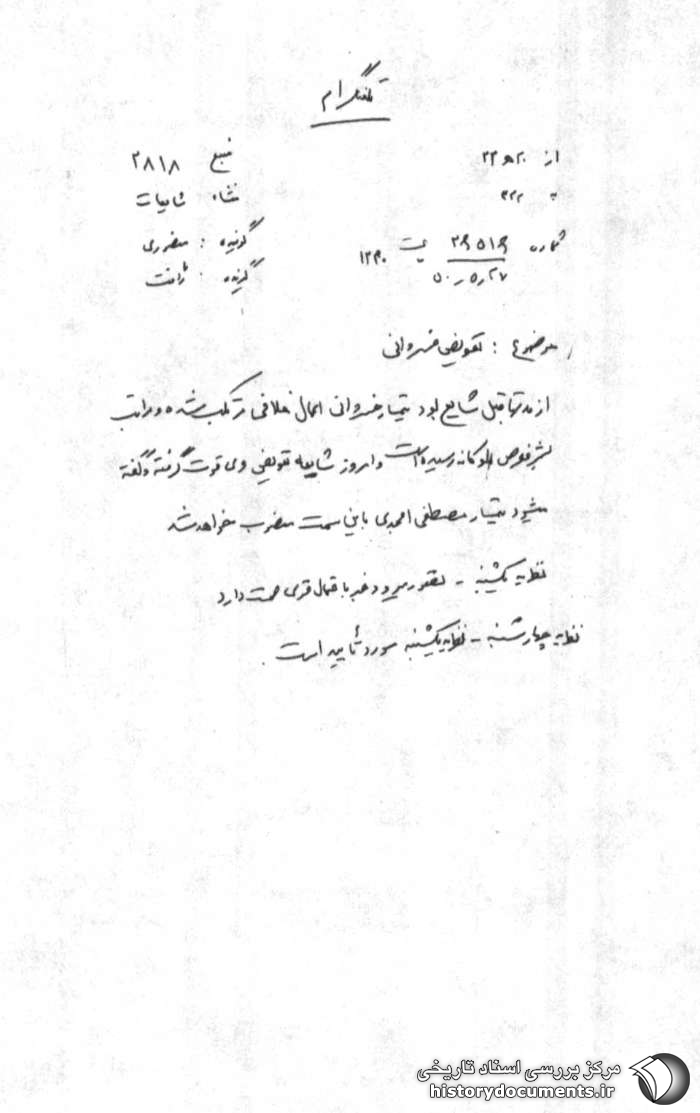 تلگرام
از ۲۰ه۲۲ منبع ۲۸۱۸
به ۳۲۲ منشاء شایعات
شماره ۲۹۵۱۹ ساعت ۱۲۴۰ گوینده : منصوری
۵۰٫۵٫۲۷ گیرنده :
موضوع : تعویض خسروانی
از مدتها قبل شایع بود تیمسار خسروانی اعمال خلافی مرتکب شده و مراتب
بشرفعرض ملوکانه رسیده است و امروز شایعه تعویض وی قوت گرفته و گفته
میشود تیمسار مصطفی امجدی باین سمت منصوب خواهد شد
نظریه یکشنبه - تصور میرود خبر با احتمال قوی صحت دارد
نظریه چهارشنبه - نظریه یکشنبه مورد تأیید است .
مرکز بررسی اسناد تاریخی
historydocuments.ir